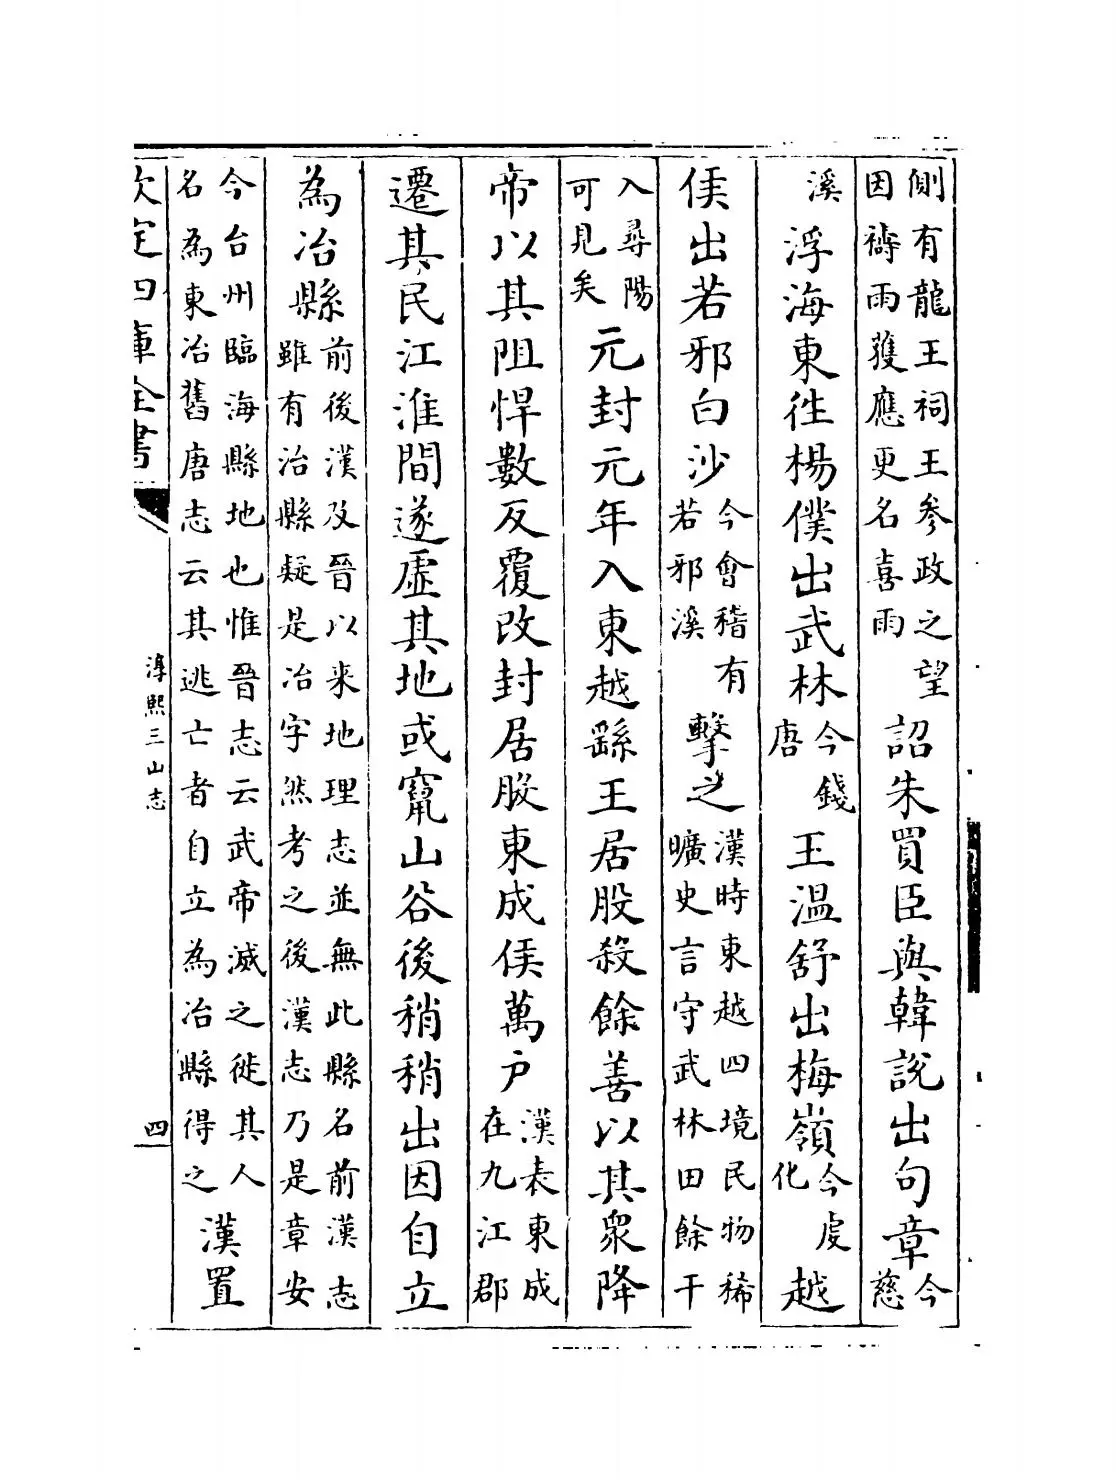 側有龍王祠王參政之望因禱雨獲應更名喜雨詔朱買臣與韓說出句章今慈
溪浮海東徃楊僕出武林今錢唐王温舒出梅嶺今虔化越
侯出若邪白沙今會稽有若邪溪擊之漢時東越四境民物稀曠史言守武林田餘干
入尋陽可見矣元封元年入東越繇王居股殺餘善以其衆降
帝以其阻悍數反覆改封居股東成侯萬户漢表東成在九江郡
遷其民江淮間遂虚其地或竄山谷後稍稍出因自立
為冶縣前後漢及晉以来地理志並無此縣名前漢志雖有治縣疑是冶字然考之後漢志乃是章安
今台州臨海縣地也惟晉志云武帝滅之徙其人名為東冶舊唐志云其逃亡者自立為冶縣得之漢置
欽定四庫全書
淳熙三山志
四